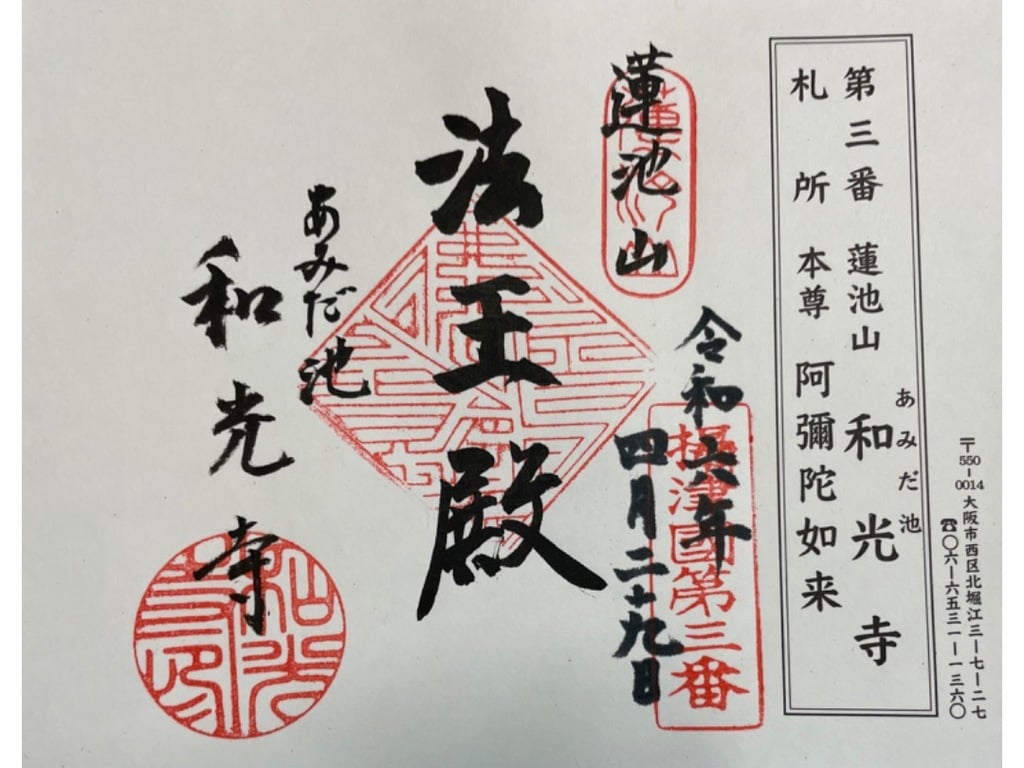 第三番 蓮池山 和光寺
あみだ池
札所 本尊 阿彌陀如来
〒550-0014 大阪市西区北堀江三ー七ー二七
☎〇六ー六五三一ー一三六〇
蓮池山
令和六年
四月二十九日
摂津國第三番
法王殿
あみだ池
和光寺